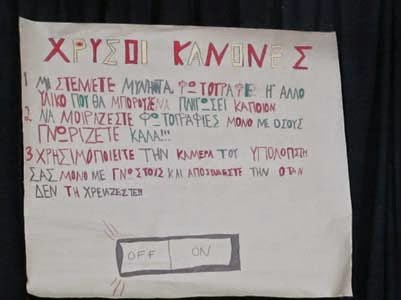 ΧΡΥΣΟΙ ΚΑΝΟΝΕΣ
1 ΜΗ ΣΤΕΛΝΕΤΕ ΜΥΝΗΜΑΤΑ, ΦΩΤΟΓΡΑΦΙΕΣ Η ΑΛΛΟ
ΥΛΙΚΟ ΠΟΥ ΘΑ ΜΠΟΡΟΥΣΕ ΝΑ ΠΛΗΓΩΣΕΙ ΚΑΠΟΙΟΝ.
2 ΝΑ ΜΟΙΡΑΖΕΣΤΕ ΦΩΤΟΓΡΑΦΙΕΣ ΜΟΝΟ ΜΕ ΟΣΟΥΣ
ΓΝΩΡΙΖΕΤΕ ΚΑΛΑ!!!
3 ΧΡΗΣΙΜΟΠΟΙΕΙΤΕ ΤΗΝ ΚΑΜΕΡΑ ΤΟΥ ΥΠΟΛΟΓΙΣΤΗ
ΣΑΣ ΜΟΝΟ ΜΕ ΓΝΩΣΤΟΥΣ ΚΑΙ ΑΠΟΣΥΝΔΕΕΤΕ ΤΗΝ ΟΤΑΝ
ΔΕΝ ΤΗ ΧΡΕΙΑΖΕΣΤΕ!!
OFF ON